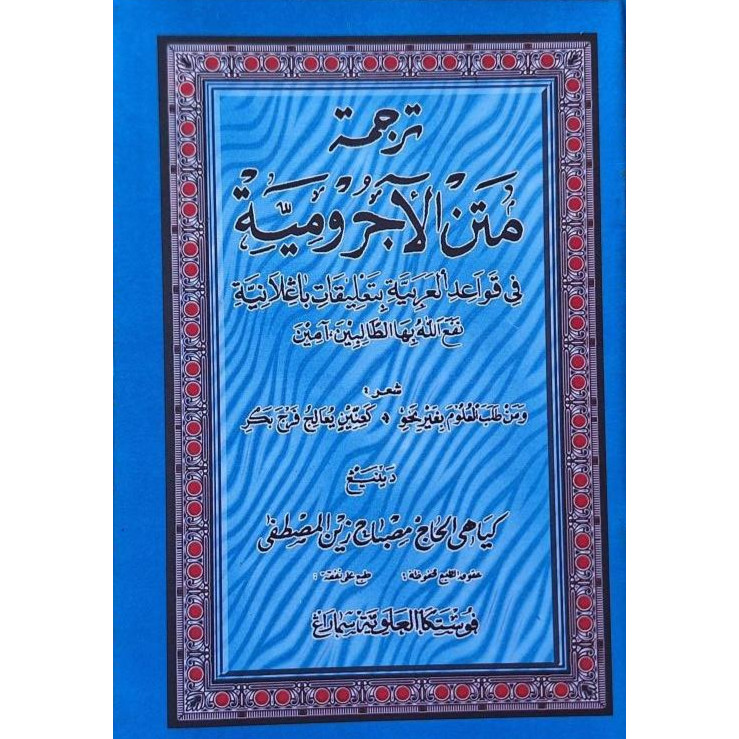 ترجمة
مَتْنُ الْآجُرُّومِيَّةِ
فِي قَوَاعِدِ الْعَرَبِيَّةِ بِتَعْلِيْقَاتِ بَاڠْلَانِيَّةِ
نَفَعَ اللّٰهُ بِهَا الطَّالِبِيْنَ، آمِيْنَ
شعر:
وَمَنْ طَلَبَ الْعُلُوْمَ بِغَيْرِ نَحْوٍ * كَعِنِّيْنٍ يُعَالِجُ فَرْجَ بَكْرِ
دينيڠ
كياهى الحاج مصباح زين المصطفى
حقوق الطبع محفوظة: طبع على نفقة:
فوستكا العلوية سماراڠ